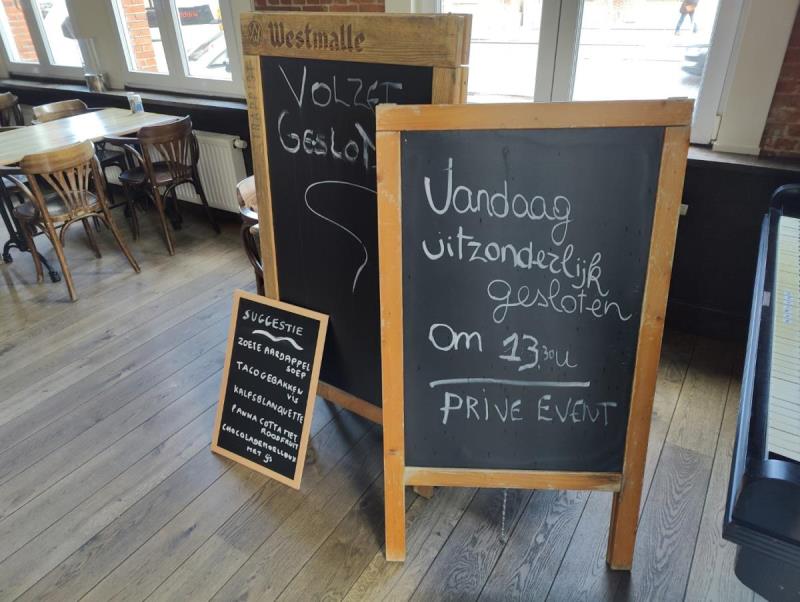 Westmalle
TRAPPIST
VOLZET
Vandaag
uitzonderlijk
gesloten
Om 13.30u
PRIVE EVENT
SUGGESTIE
ZOETE AARDAPPEL
SOEP
TACO GEBAKKEN
VIS
KALFSBLANQUETTE
PANNA COTTA MET
ROODFRUIT
CHOCOLADEMOELLEUX
MET IJS